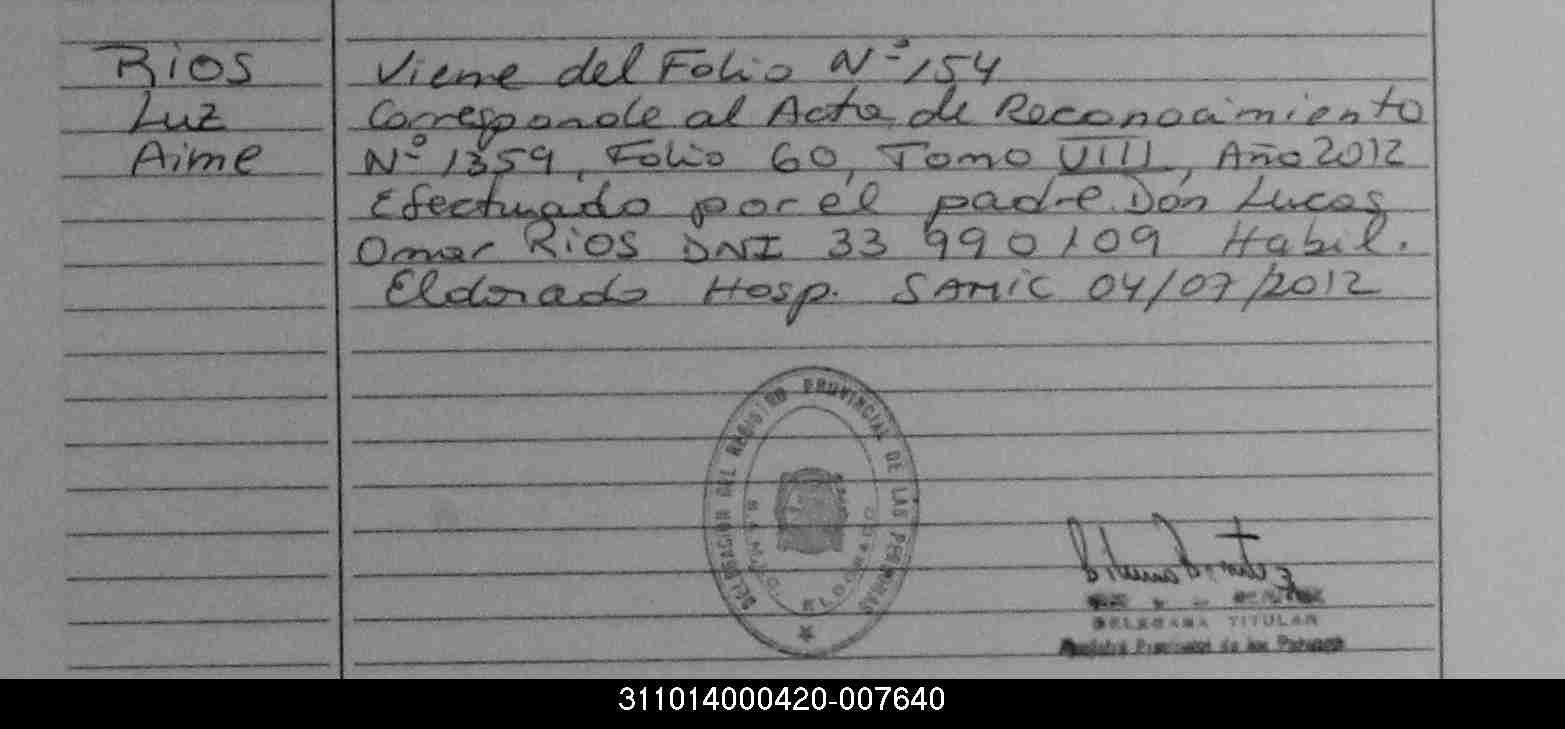 Rios
Luz
Aime
Viene del Folio Nº 154
Corresponde al Acta de Reconocimiento
Nº 1359, Folio 60, Tomo VIII, Año 2012
Efectuado por el padre Don Lucas
Omar Rios DNI 33 990109 Habil.
Eldorado Hosp. SAMIC 04/07/2012
DELEGACION DEL REGISTRO PROVINCIAL DE LAS PERSONAS
S.A.M.I.C. ELDORADO
DELEGADA TITULAR
Registro Provincial de las Personas
311014000420-007640